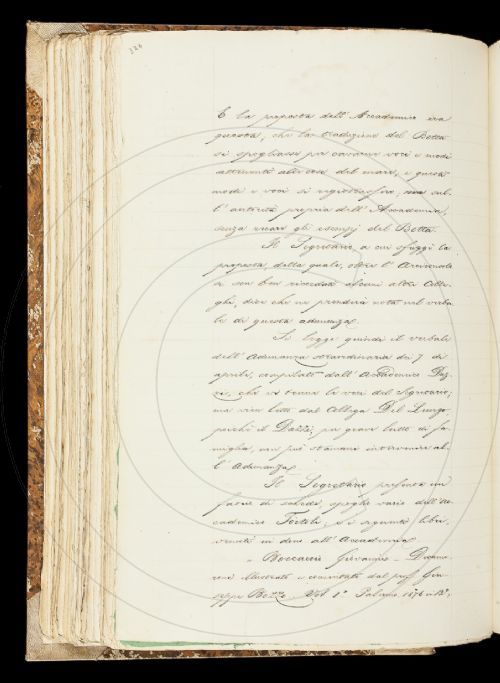 324
E la proposta dell'Accademico era
questa, che la traduzione del Botta
si spogliasse per cavarne voci e modi
attenenti alle cose del mare, e questi
modi e voci si registrassero, ma sul-
l'autorità propria dell'Accademia,
senza recare gli esempj del Botta.
Il Segretario, a cui sfuggì la
proposta, della quale, oltre l'Arciconsolo
si son ben ricordati alcuni altri Colle-
ghi, dice che ne prenderà nota nel verba-
le di questa adunanza.
Si legge quindi il verbale
dell'Adunanza straordinaria de' 7 di
aprile, compilato dall'Accademico Daz-
zi, che vi tenne le veci del Segretario;
ma vien letto dal Collega Del Lungo,
perchè il Dazzi, per grave lutto di fa-
miglia, non può stamane intervenire al-
l'Adunanza.
Il Segretario presenta un
fascio di schede, spoglio vario dell'Ac-
cademico Tortoli, e i seguenti libri,
venuti in dono all'Accademia
Boccaccio Giovanni – Decame-
rone illustrato e commentato dal prof. Giu-
seppe Bozzo. Vol. 1° Palermo 1876 in 8°;